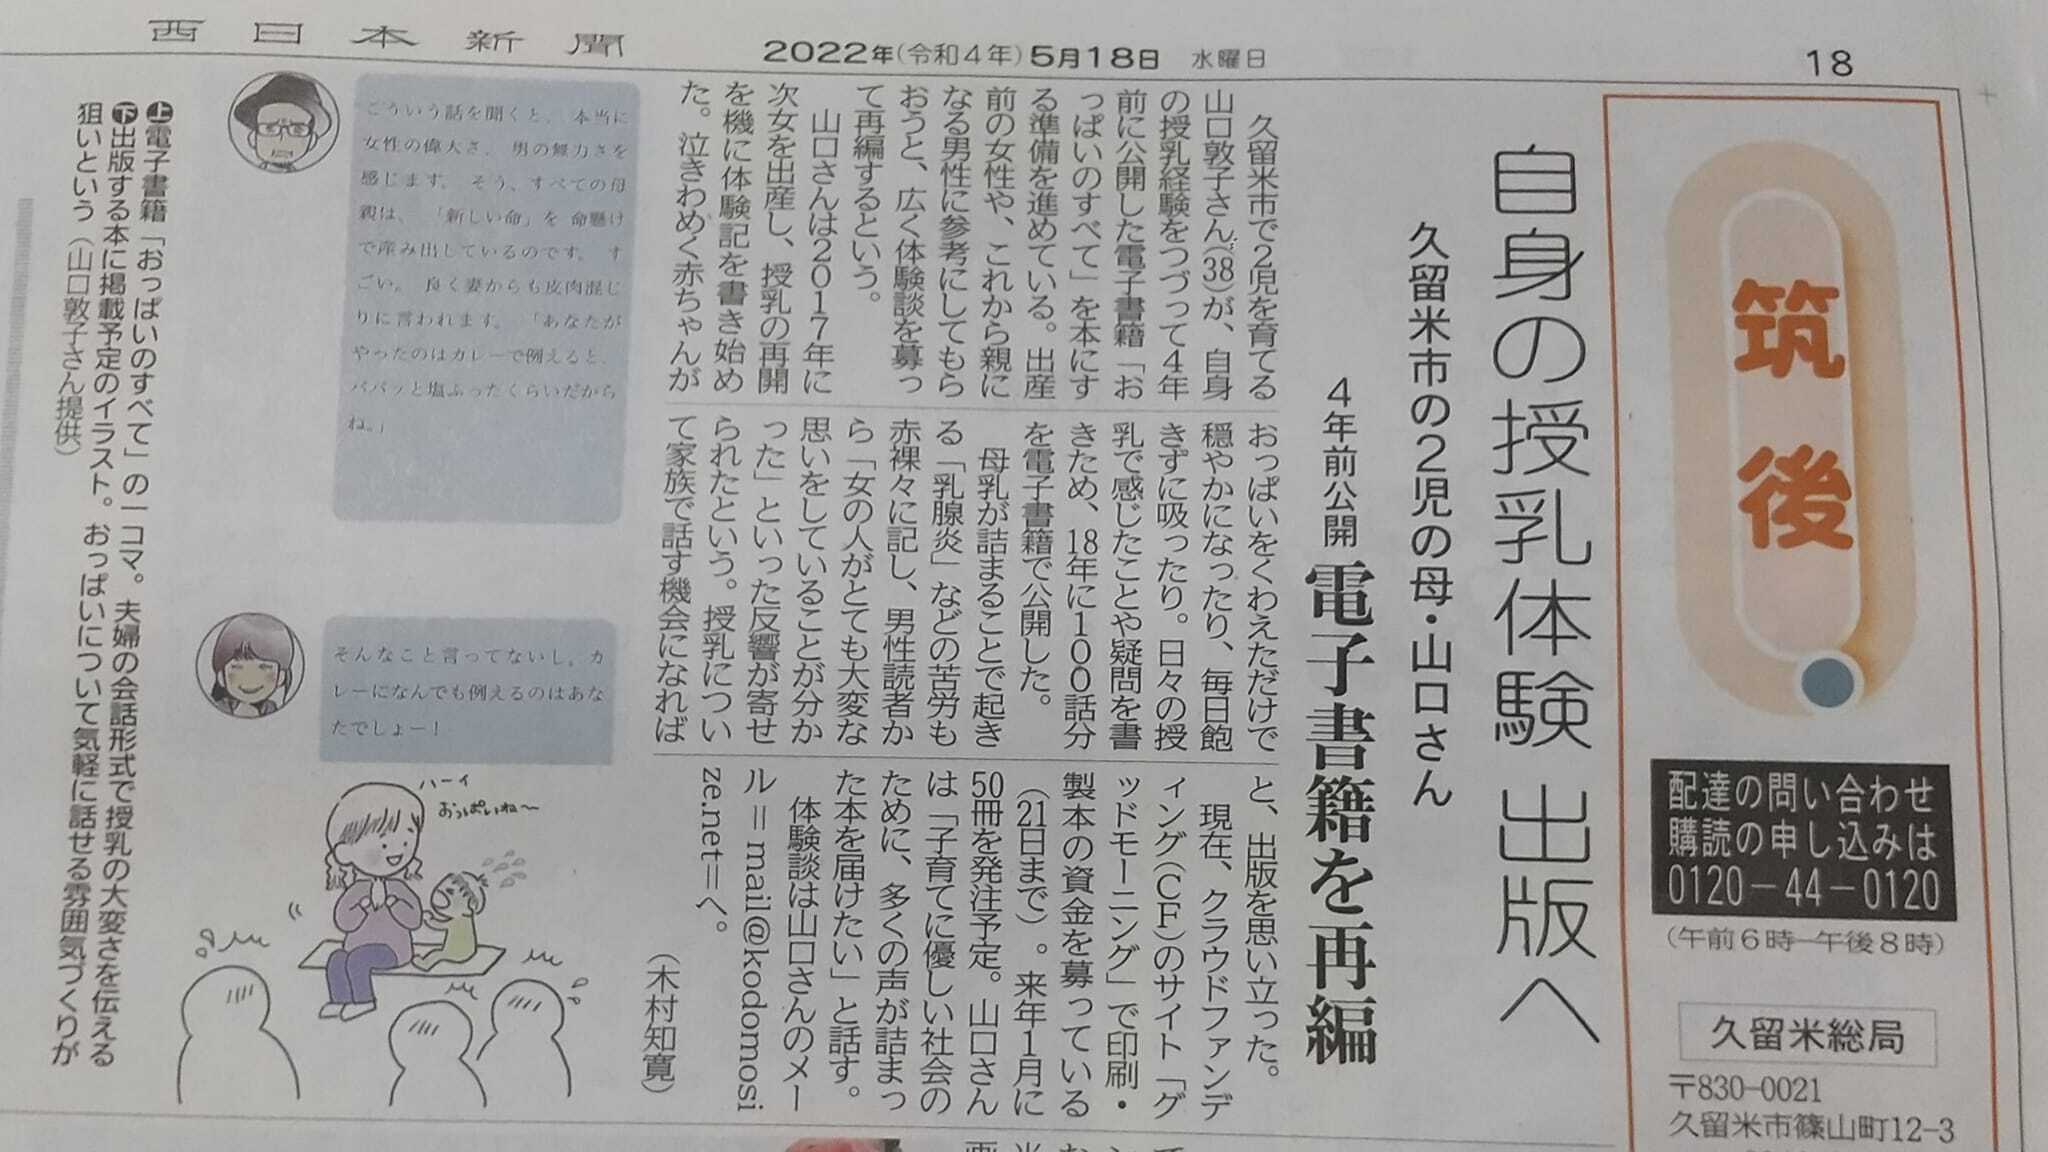 西日本新聞
2022年(令和4年)5月18日 水曜日
18
筑後
配達の問い合わせ
購読の申し込みは
0120-44-0120
(午前6時―午後8時)
久留米総局
〒830-0021
久留米市篠山町12-3
自身の授乳体験 出版へ
久留米市の2児の母・山口さん
4年前公開 電子書籍を再編
久留米市で2児を育てる
山口敦子さん(38)が、自身
の授乳経験をつづって4年
前に公開した電子書籍「お
っぱいのすべて」を本にす
る準備を進めている。出産
前の女性や、これから親に
なる男性に参考にしてもら
おうと、広く体験談を募っ
て再編するという。
山口さんは2017年に
次女を出産し、授乳の再開
を機に体験記を書き始め
た。泣きわめく赤ちゃんが
おっぱいをくわえただけで
穏やかになったり、毎日飽
きずに吸ったり。日々の授
乳で感じたことや疑問を書
きため、18年に100話分
を電子書籍で公開した。
母乳が詰まることで起き
る「乳腺炎」などの苦労も
赤裸々に記し、男性読者か
ら「女の人がとても大変な
思いをしていることが分か
った」といった反響が寄せ
られたという。授乳につい
て家族で話す機会になれば
と、出版を思い立った。
現在、クラウドファンデ
ィング(CF)のサイト「グ
ッドモーニング」で印刷・
製本の資金を募っている
(21日まで)。来年1月に
50冊を発注予定。山口さん
は「子育てに優しい社会の
ために、多くの声が詰まっ
た本を届けたい」と話す。
体験談は山口さんのメー
ル=mail@kodomosi
ze.net=へ。
(木村知寛)
こういう話を聞くと、本当に
女性の偉大さ、男の無力さを
感じます。そう、すべての母
親は、「新しい命」を 命懸け
で産み出しているのです。す
ごい。良く妻からも皮肉混じ
りに言われます。「あなたが
やったのはカレーで例えると、
パパッと塩ふったくらいだから
ね。」
そんなこと言ってないし。カ
レーになんでも例えるのはあな
たでしょー!
ハーイ
おっぱいね〜
㊤電子書籍「おっぱいのすべて」の一コマ。夫婦の会話形式で授乳の大変さを伝える
㊦出版する本に掲載予定のイラスト。おっぱいについて気軽に話せる雰囲気づくりが
狙いという(山口敦子さん提供)